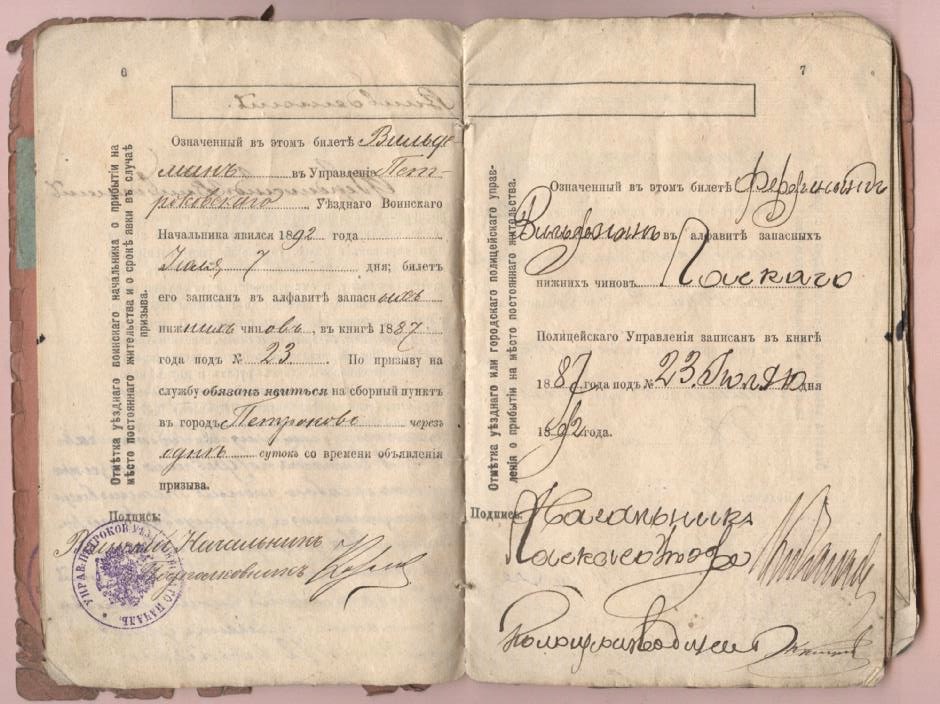 6
Отмѣтка уѣзднаго воинскаго начальника о прибытіи на
мѣсто постояннаго жительства и о срокѣ явки въ случаѣ
призыва.
Означенный въ этомъ билетѣ Вильде-
манъ въ Управленіи Пет-
роковскаго Уѣзднаго Воинскаго
Начальника явился 1892 года
Іюля 7 дня; билетъ
его записанъ въ алфавитѣ запасныхъ
нижнихъ чиновъ, въ книгѣ 1887
года подъ № 23. По призыву на
службу обязанъ явиться на сборный пунктъ
въ городѣ Петроковѣ черезъ
сутокъ со времени объявленія
призыва.
Подпись:
Начальникъ
Подполковникъ
7
Отмѣтка уѣзднаго или городского полицейскаго управ-
ленія о прибытіи на мѣсто постояннаго жительства.
Означенный въ этомъ билетѣ Фердинандъ
Вильдеманъ въ алфавитѣ запасныхъ
нижнихъ чиновъ Ласкаго
Полицейскаго Управленія записанъ въ книгѣ
1887 года подъ № 23. Іюлю дня
1892 года.
Подпись:
Начальника
Ласкаго